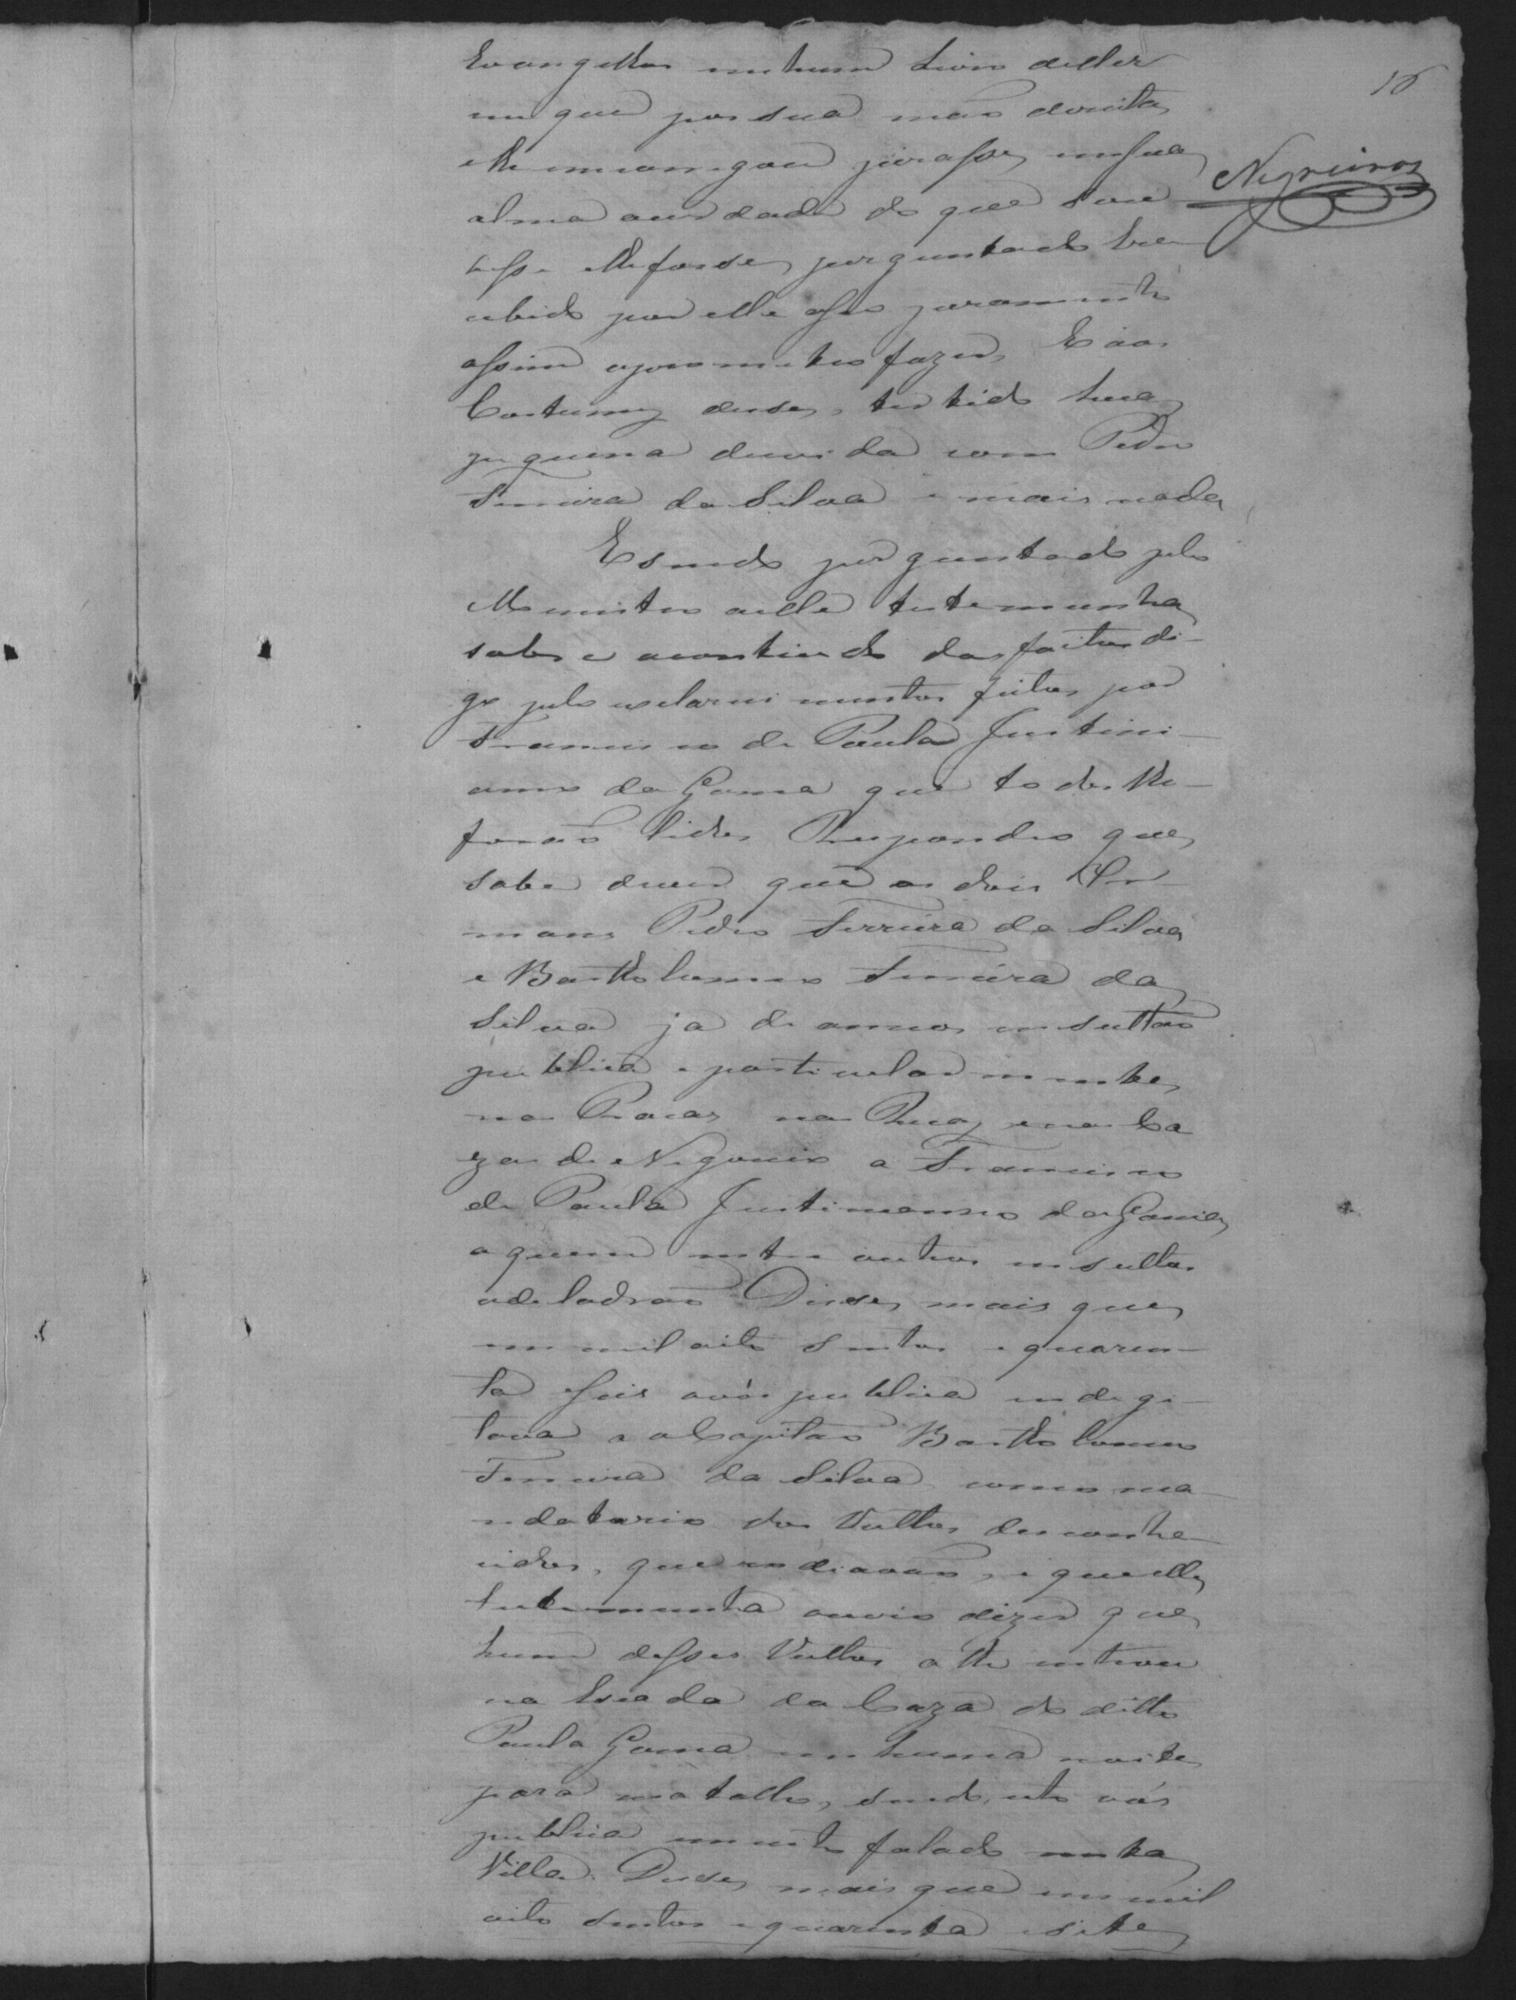 16
Negreiros
Evangelhos em hum Livro delles
em que pos sua mão direita,
e lhe emcarregou jurasse em sua
alma averdade do que sou
besse e lhe fosse perguntado e re
cebido por elle esse juramento
assim oprometteo fazer, E aos
Costumes disse, ter tido huma
pequena duvida com Pedro
Ferreira da Silva e mais nada
E sendo perguntado pelo
Menistro a elle testemunha
sobre o acontecido dos factos di-
go pelo esclarecimentos feitos por
Francisco de Paula Justini-
anno da Gama que todos lhe
forão lidos Respondeo que
sabe que os dois Ir-
maons Pedro Ferreira da Silva
e Bartholomeo Ferreira da
Silva ja de annos insultão
publica e particularmente
nas Pracas nas Ruas, e nas Ca
zas de Negocio a Francisco
de Paula Justinianno da Gama
a quem entre outros insultos
o de ladrão Disse mais que
em mil oito sentos e quaren-
ta e seis avós publica indegi-
tava a o Capitão Bartholomeo
Ferreira da Silva como ma-
ndatario dos Vultos desconhe-
cidos, que rodiavão, e que elle
testemunha ouvio dizer que
hum desses Vultos athe entrou
na Escada da Caza do ditto
Paula Gama em huma noite
para matallo, sendo esta vós
publica muito falado nesta
Villa. Disse mais que em mil
oito sentos e quarenta e sete